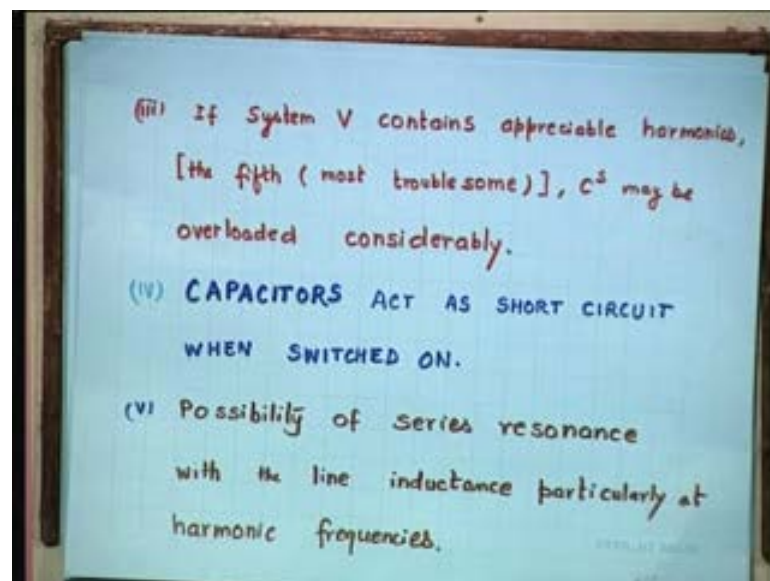 (iii) If System V contains appreciable harmonics,
[the fifth ( most troublesome)], Cˢ may be
overloaded considerably.
(iv) CAPACITORS ACT AS SHORT CIRCUIT
WHEN SWITCHED ON.
(v) Possibility of series resonance
with the line inductance particularly at
harmonic frequencies.